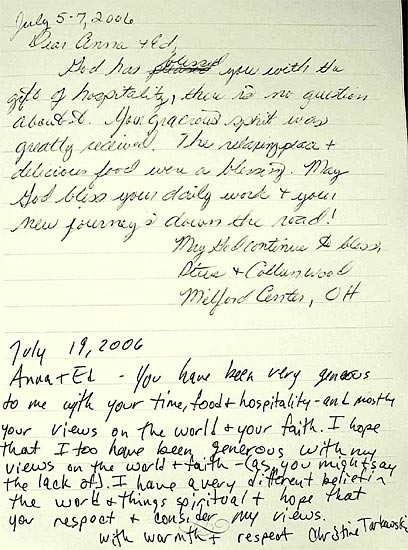 July 5-7, 2006
Dear Anna + Ed,
God has blessed you with the
gift of hospitality, there is no question
about it. Your gracious spirit was
greatly received. The relaxing place +
delicious food were a blessing. May
God bless your daily work + your
new journeys down the road!
May God continue to bless,
+
Milford Center, OH
July 19, 2006
Anna + Ed - You have been very generous
to me with your time, food + hospitality - and mostly
your views on the world + your faith. I hope
that I too have been generous with my
views on the world + faith - (as you might say
the lack of). I have a very different belief in
the world + things spiritual + hope that
you respect + consider my views.
with warmth + respect Christine Tarkowski